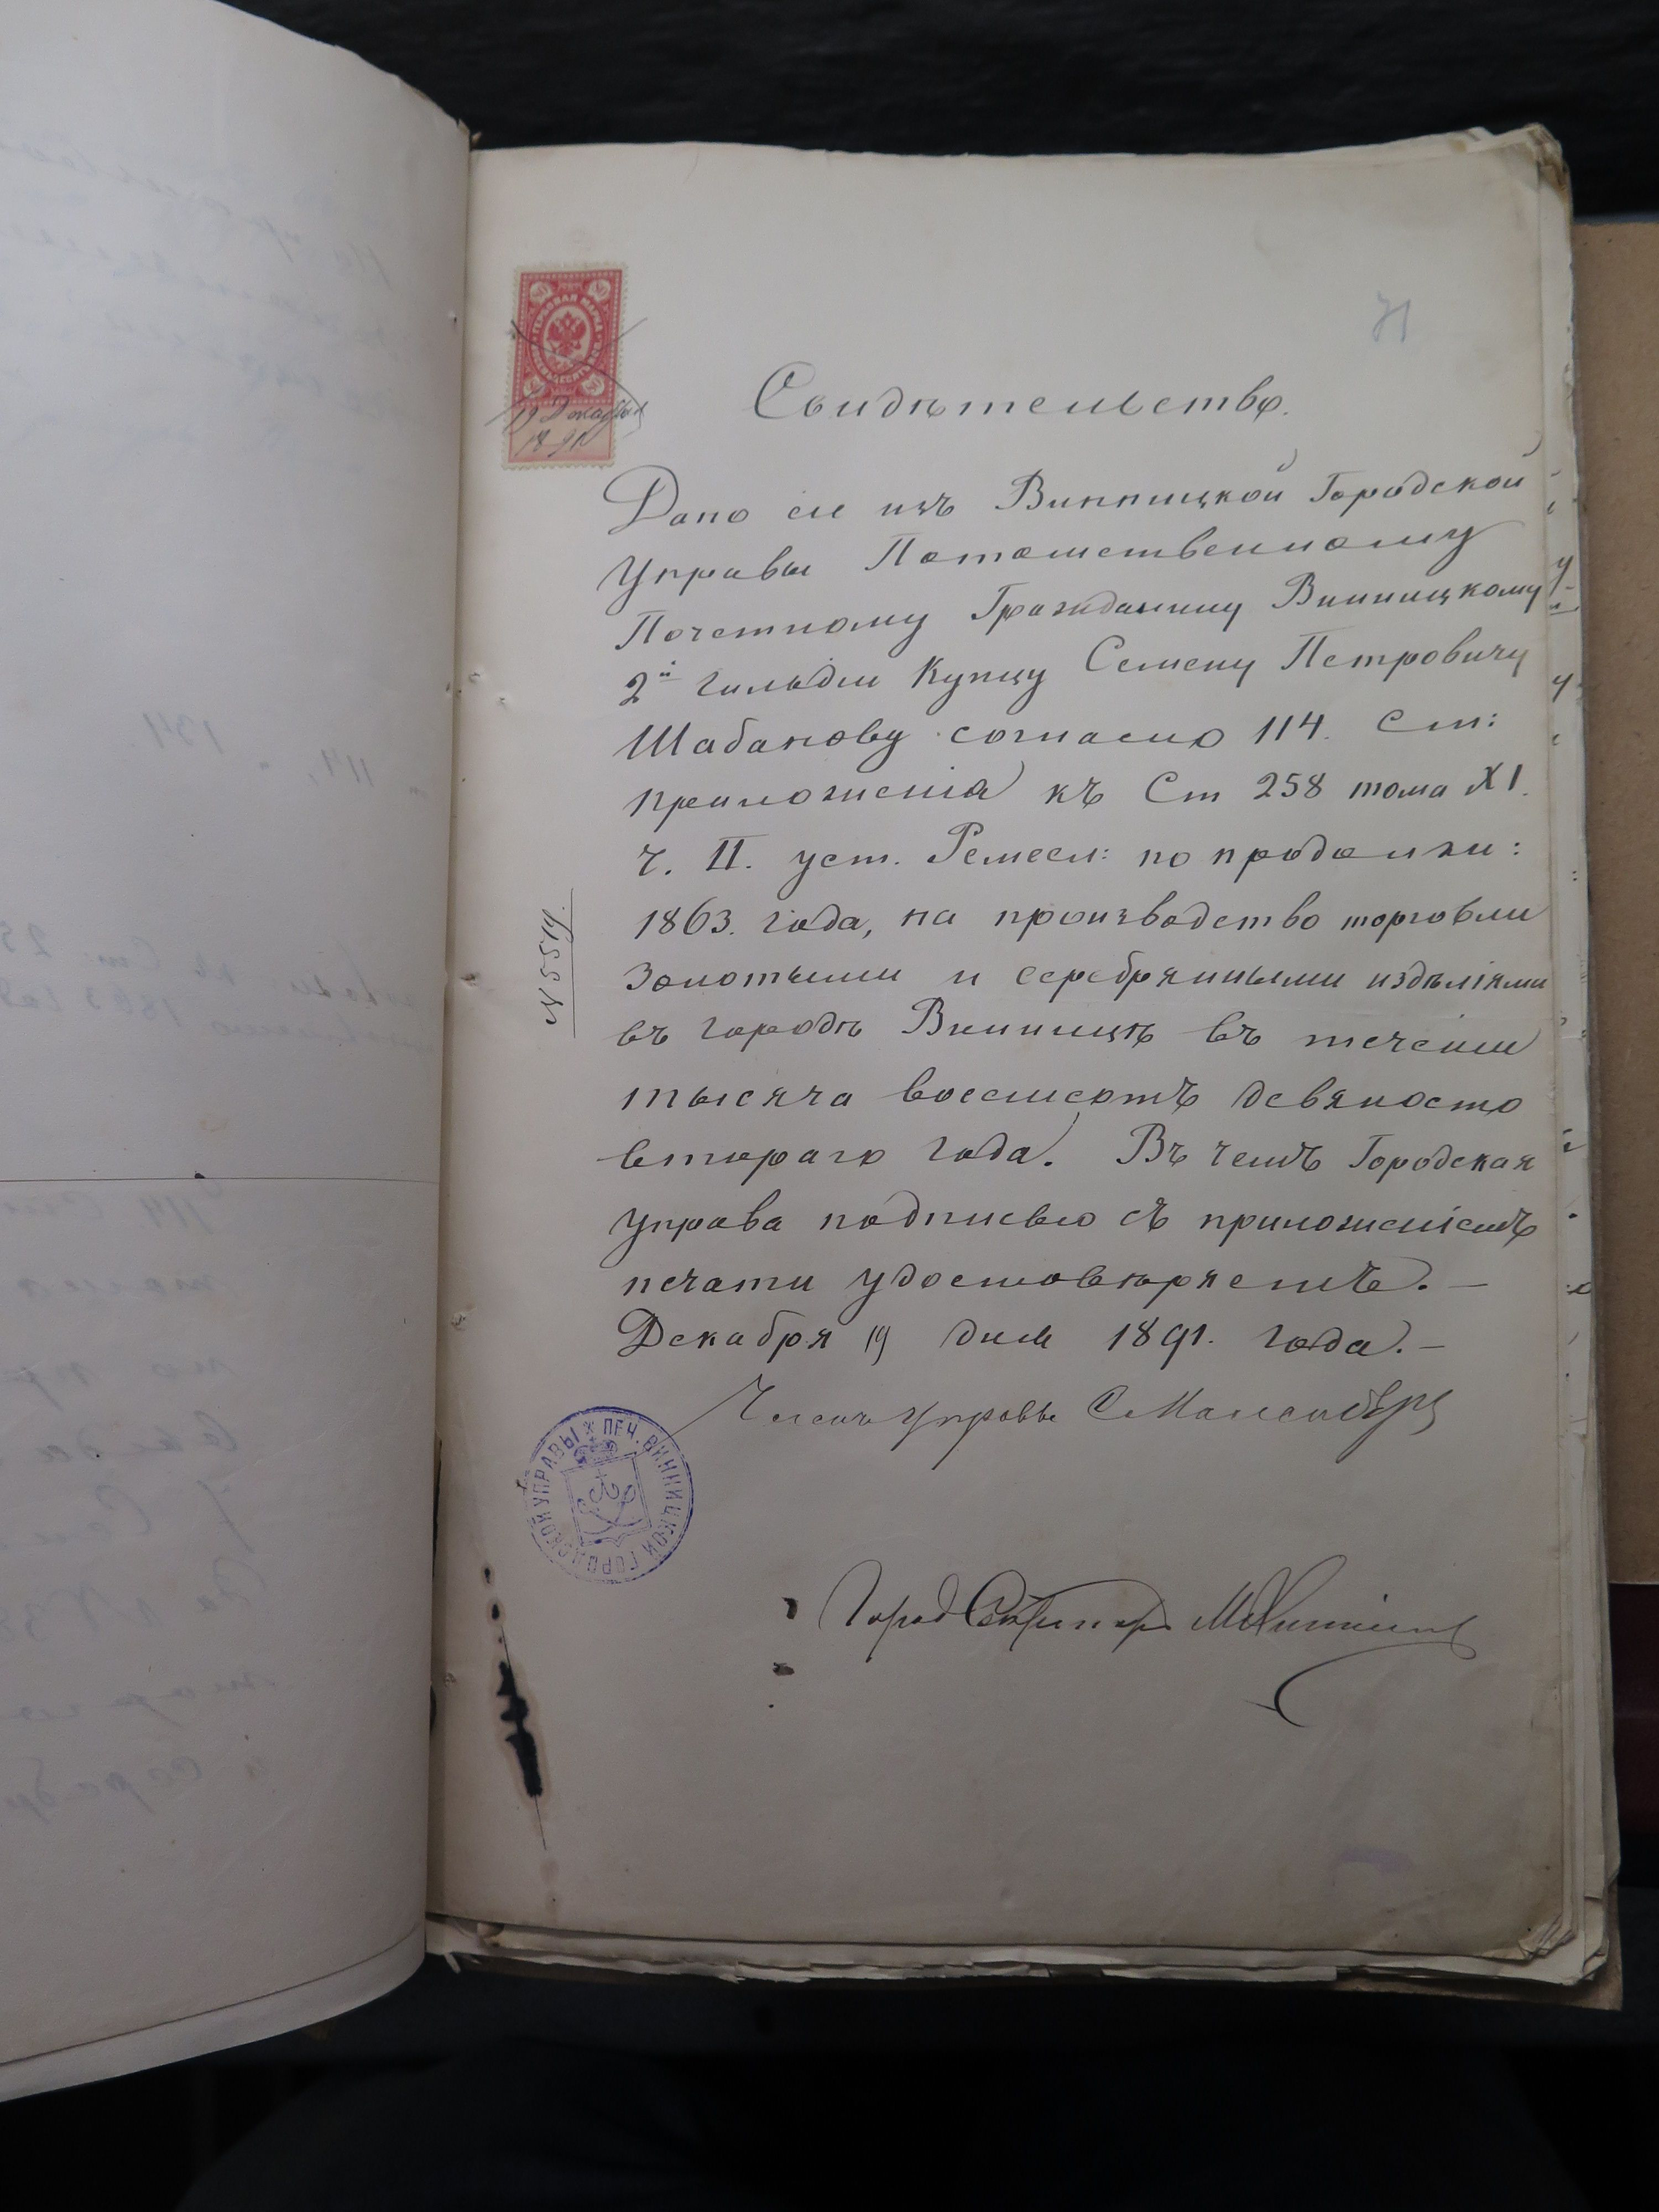 71
ГЕРБОВАЯ МАРКА
19 Декабря
1891
Свидѣтельство.
Дано сіе изъ Винницкой Городской
Управы Потомственному
Почетному Гражданину Винницкому
2й гильдіи Купцу Семену Петровичу
Шабанову согласно 114. Ст:
приложенія къ Ст 258 тома XI.
Ч. II. уст. Ремесл: по продолжи:
1863. года, на производство торговли
Золотыми и серебряными издѣліями
въ городѣ Винницѣ въ теченіи
тысяча восемсотъ девяносто
втораго года. Въ чемъ Городская
Управа подписью съ приложеніемъ
печати удостовѣряетъ. —
Декабря 19 дня 1891. года. —
N 5519.
Членъ Управы
ПЕЧ. ВИННИЦКОЙ ГОРОДСКОЙ УПРАВЫ
Город Секретарь